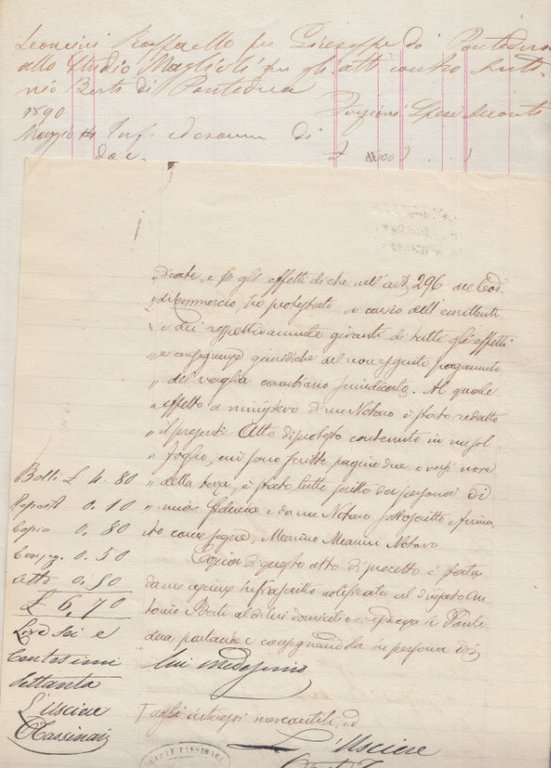 Leoncini Raffaello fu Giuseppe di Pontedera
allo Studio Maglioli per gli atti contro
Berti di Pontedera
1890
Maggio 14 Inf. ed esame di
doc. £ 100
dicate, e p. gli effetti di che nell'art. 296 del Cod.
di Commercio, ho protestato, a carico dell'emittente
e dei rispettivamente giranti di tutti gli effetti
e conseguenze giuridiche del non eseguito pagamento
del vaglia cambiario surriferito. Al quale
effetto a ministero di me Notaro è stato redatto
il presente Atto di protesto contenuto in un sol
foglio, cui sono scritte pagine due e versi nove
della terza, è stato tutto scritto da persona di
mia fiducia e da me Notaro sottoscritto e firma
to come segue, Meucci Notaro
Copia di questo atto di precetto è stata
da me usciere infrascritto notificata al di
tonio Berti al di lui domicilio in Ponte
dera, parlando e consegnandola in persona di
lui medesimo
Bolli £ 4.80
Repert 0.10
Copia 0.80
0.50
Atto 0.50
£ 6.70
Lire sei e
Centesimi
settanta
L'Usciere
Cassinari
Tagli interessi mercantili, ed
L'Usciere